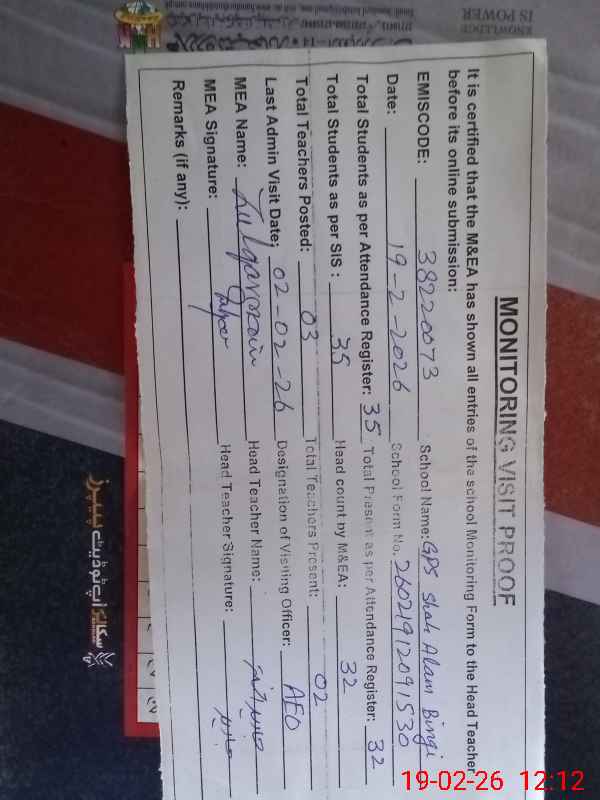 KNOWLEDGE
IS POWER
MONITORING VISIT PROOF
It is certified that the M&EA has shown all entries of the school Monitoring Form to the Head Teacher
before its online submission:
EMISCODE: 38220073 School Name: GPS Shah Alam Bingi
Date: 19-2-2026 School Form No. 26021912091530
Total Students as per Attendance Register: 35 Total Present as per Attendance Register: 32
Total Students as per SIS : 35 Head count by M&EA: 32
Total Teachers Posted: 03 Total Teachers Present: 02
Last Admin Visit Date: 02-02-26 Designation of Visiting Officer: AEO
MEA Name: Head Teacher Name:
MEA Signature: Head Teacher Signature:
Remarks (if any):
سکالرز اپ ٹو ڈیٹ پیپرز
19-02-26 12:12